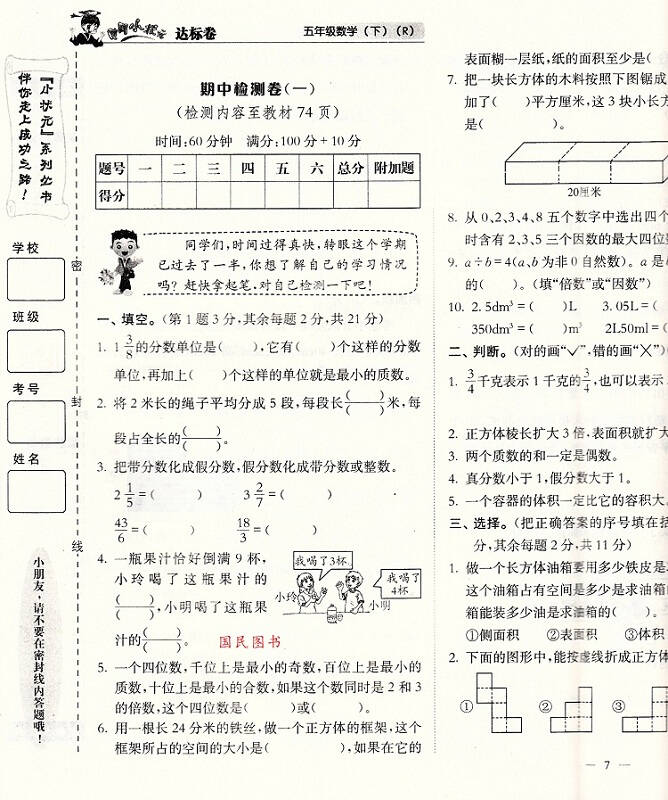 黄冈小状元 达标卷
五年级数学(下)(R)
『小状元』系列丛书
伴你走上成功之路!
学校
班级
考号
姓名
密
封
线
小朋友,请不要在密封线内答题哦!
期中检测卷(一)
(检测内容至教材 74 页)
时间:60 分钟 满分:100 分+10 分
题号 一 二 三 四 五 六 总分 附加题
得分
同学们,时间过得真快,转眼这个学期
已过去了一半,你想了解自己的学习情况
吗? 赶快拿起笔,对自己检测一下吧!
一、填空。(第 1 题 3 分,其余每题 2 分,共 21 分)
1. 1 3/8 的分数单位是( ),它有( )个这样的分数
单位,再加上( )个这样的单位就是最小的质数。
2. 将 2 米长的绳子平均分成 5 段,每段长( )/( )米,每
段占全长的( )/( )。
3. 把带分数化成假分数,假分数化成带分数或整数。
2 1/5 =( ) 3 2/7 =( )
43/6 =( ) 18/3 =( )
4. 一瓶果汁恰好倒满 9 杯,
小玲喝了这瓶果汁的
( )/( ),小明喝了这瓶果
汁的( )/( )。
我喝了3杯
我喝了
4杯
小玲
小明
国民图书
5. 一个四位数,千位上是最小的奇数,百位上是最小的
质数,十位上是最小的合数,如果这个数同时是 2 和 3
的倍数,这个四位数是( )或( )。
6. 用一根长 24 分米的铁丝,做一个正方体的框架,这个
框架所占的空间的大小是( ),如果在它的
表面糊一层纸,纸的面积至少是(
7. 把一块长方体的木料按照下图锯成
加了( )平方厘米,这 3 块小长方
是( )。
20厘米
8. 从 0、2、3、4、8 五个数字中选出四个
时含有 2、3、5 三个因数的最大四位
9. a÷b=4(a、b 为非 0 自然数)。a 是
的( )。(填“倍数”或“因数”)
10. 2.5dm³=( )L 3.05L=(
350dm³=( )m³ 2L50ml=(
二、判断。(对的画“✓”,错的画“×”)
1. 3/4 千克表示 1 千克的 3/4,也可以表示
2. 正方体棱长扩大 3 倍,表面积就扩大
3. 两个质数的和一定是偶数。
4. 真分数小于 1,假分数大于 1。
5. 一个容器的体积一定比它的容积大。
三、选择。(把正确答案的序号填在括
分,其余每题 2 分,共 11 分)
1. 做一个长方体油箱要用多少铁皮是
这个油箱占有空间是多少是求油箱
箱能装多少油是求油箱的( )
①侧面积 ②表面积 ③体积
2. 下面的图形中,能按虚线折成正方体
① ② ③
— 7 —